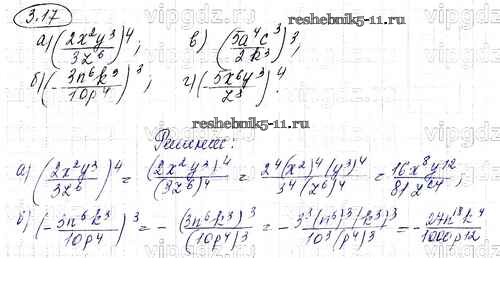 vipgdz
3.17
reshebnik5-11.ru
а) (2x²y³/3z⁶)⁴; в) (5a⁴c³/2k³)³;
б) (-3n⁶k³/10p⁴)³; г) (-5x⁶y³/z³)⁴.
reshebnik5-11.ru
Решение:
а) (2x²y³/3z⁶)⁴ = (2x²y³)⁴/(3z⁶)⁴ = 2⁴(x²)⁴(y³)⁴/3⁴(z⁶)⁴ = 16x⁸y¹²/81z²⁴;
б) (-3n⁶k³/10p⁴)³ = -(3n⁶k³)³/(10p⁴)³ = -3³(n⁶)³(k³)³/10³(p⁴)³ = -27n¹⁸k⁹/1000p¹²